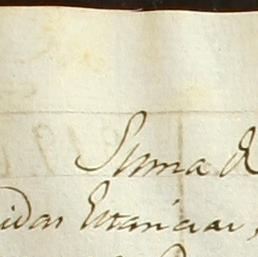 Suma d
idas Estancias,